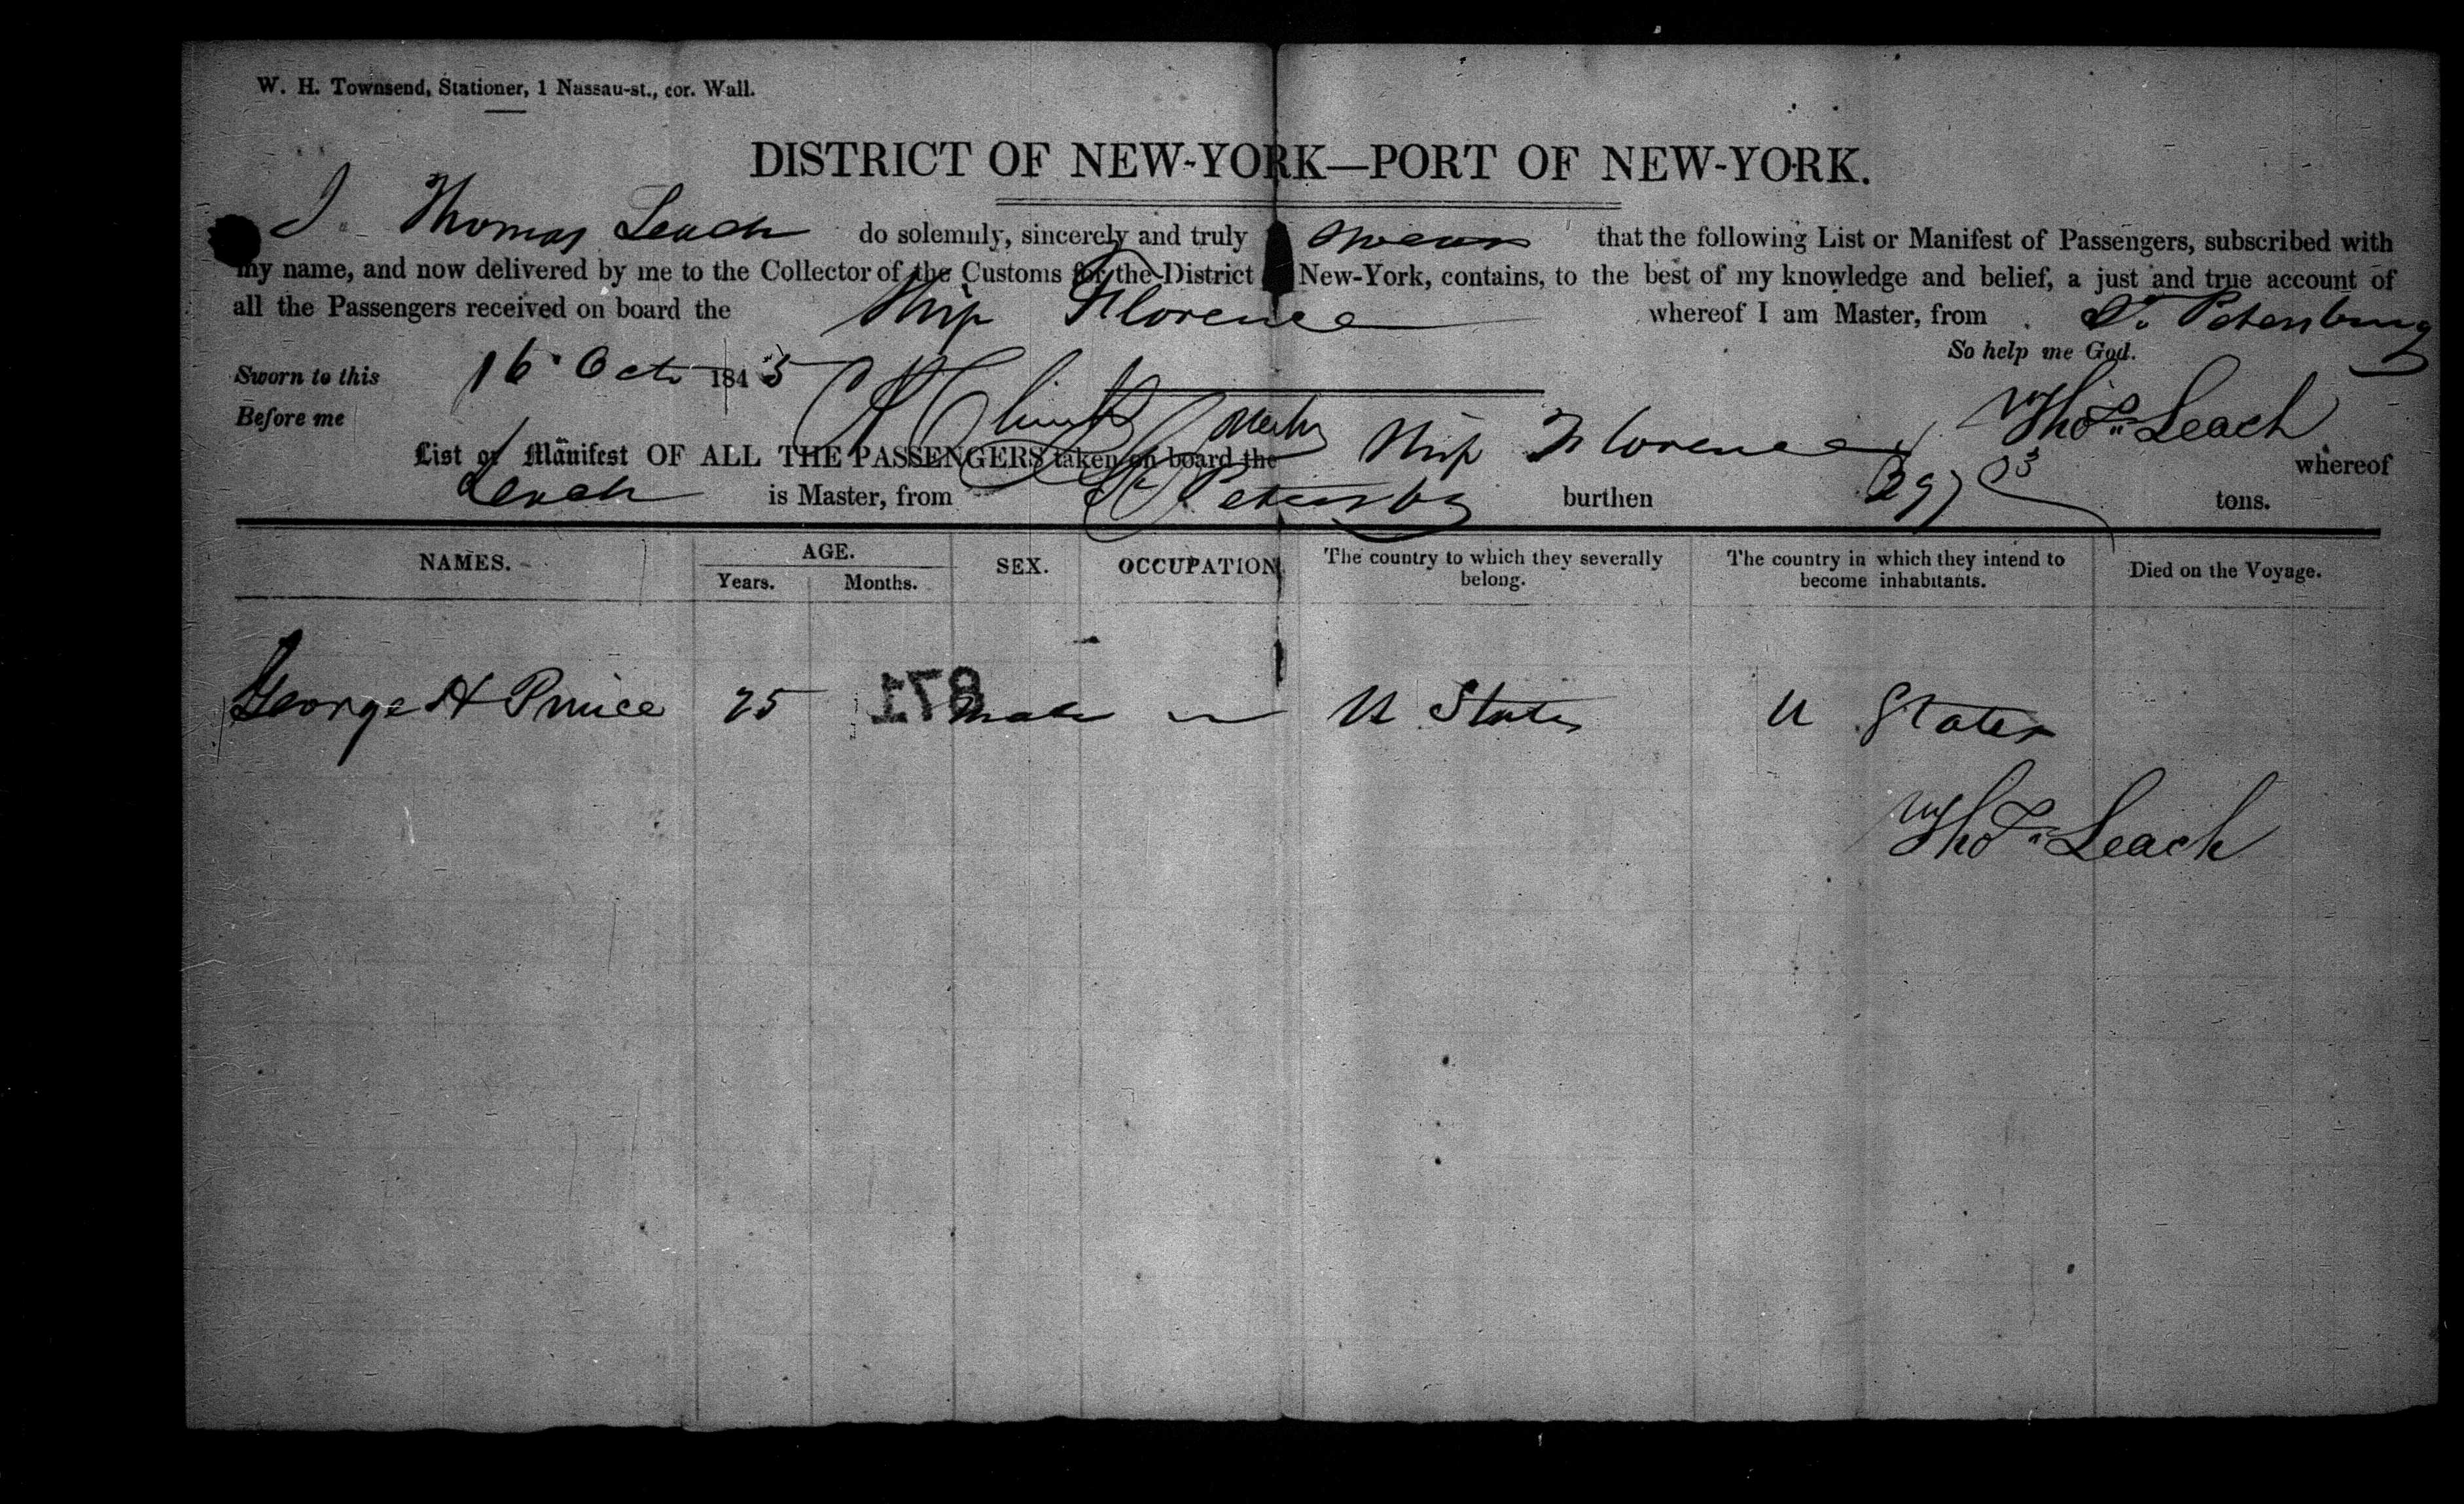 W. H. Townsend, Stationer, 1 Nassau-st., cor. Wall.
DISTRICT OF NEW-YORK—PORT OF NEW-YORK.
I Thomas Leach do solemnly, sincerely and truly swear that the following List or Manifest of Passengers, subscribed with
my name, and now delivered by me to the Collector of the Customs for the District New-York, contains, to the best of my knowledge and belief, a just and true account of
all the Passengers received on board the Ship Florence whereof I am Master, from St. Petersburg
So help me God.
Sworn to this 16 Oct 1845
Before me Thos Leach
List or Manifest OF ALL THE PASSENGERS taken on board the Ship Florence whereof
Leach is Master, from St Petersbg burthen 297 03 tons.
NAMES. AGE. Years. Months. SEX. OCCUPATION. The country to which they severally belong. The country in which they intend to become inhabitants. Died on the Voyage.
George H Prince 25 male U States U States
178
Thos Leach